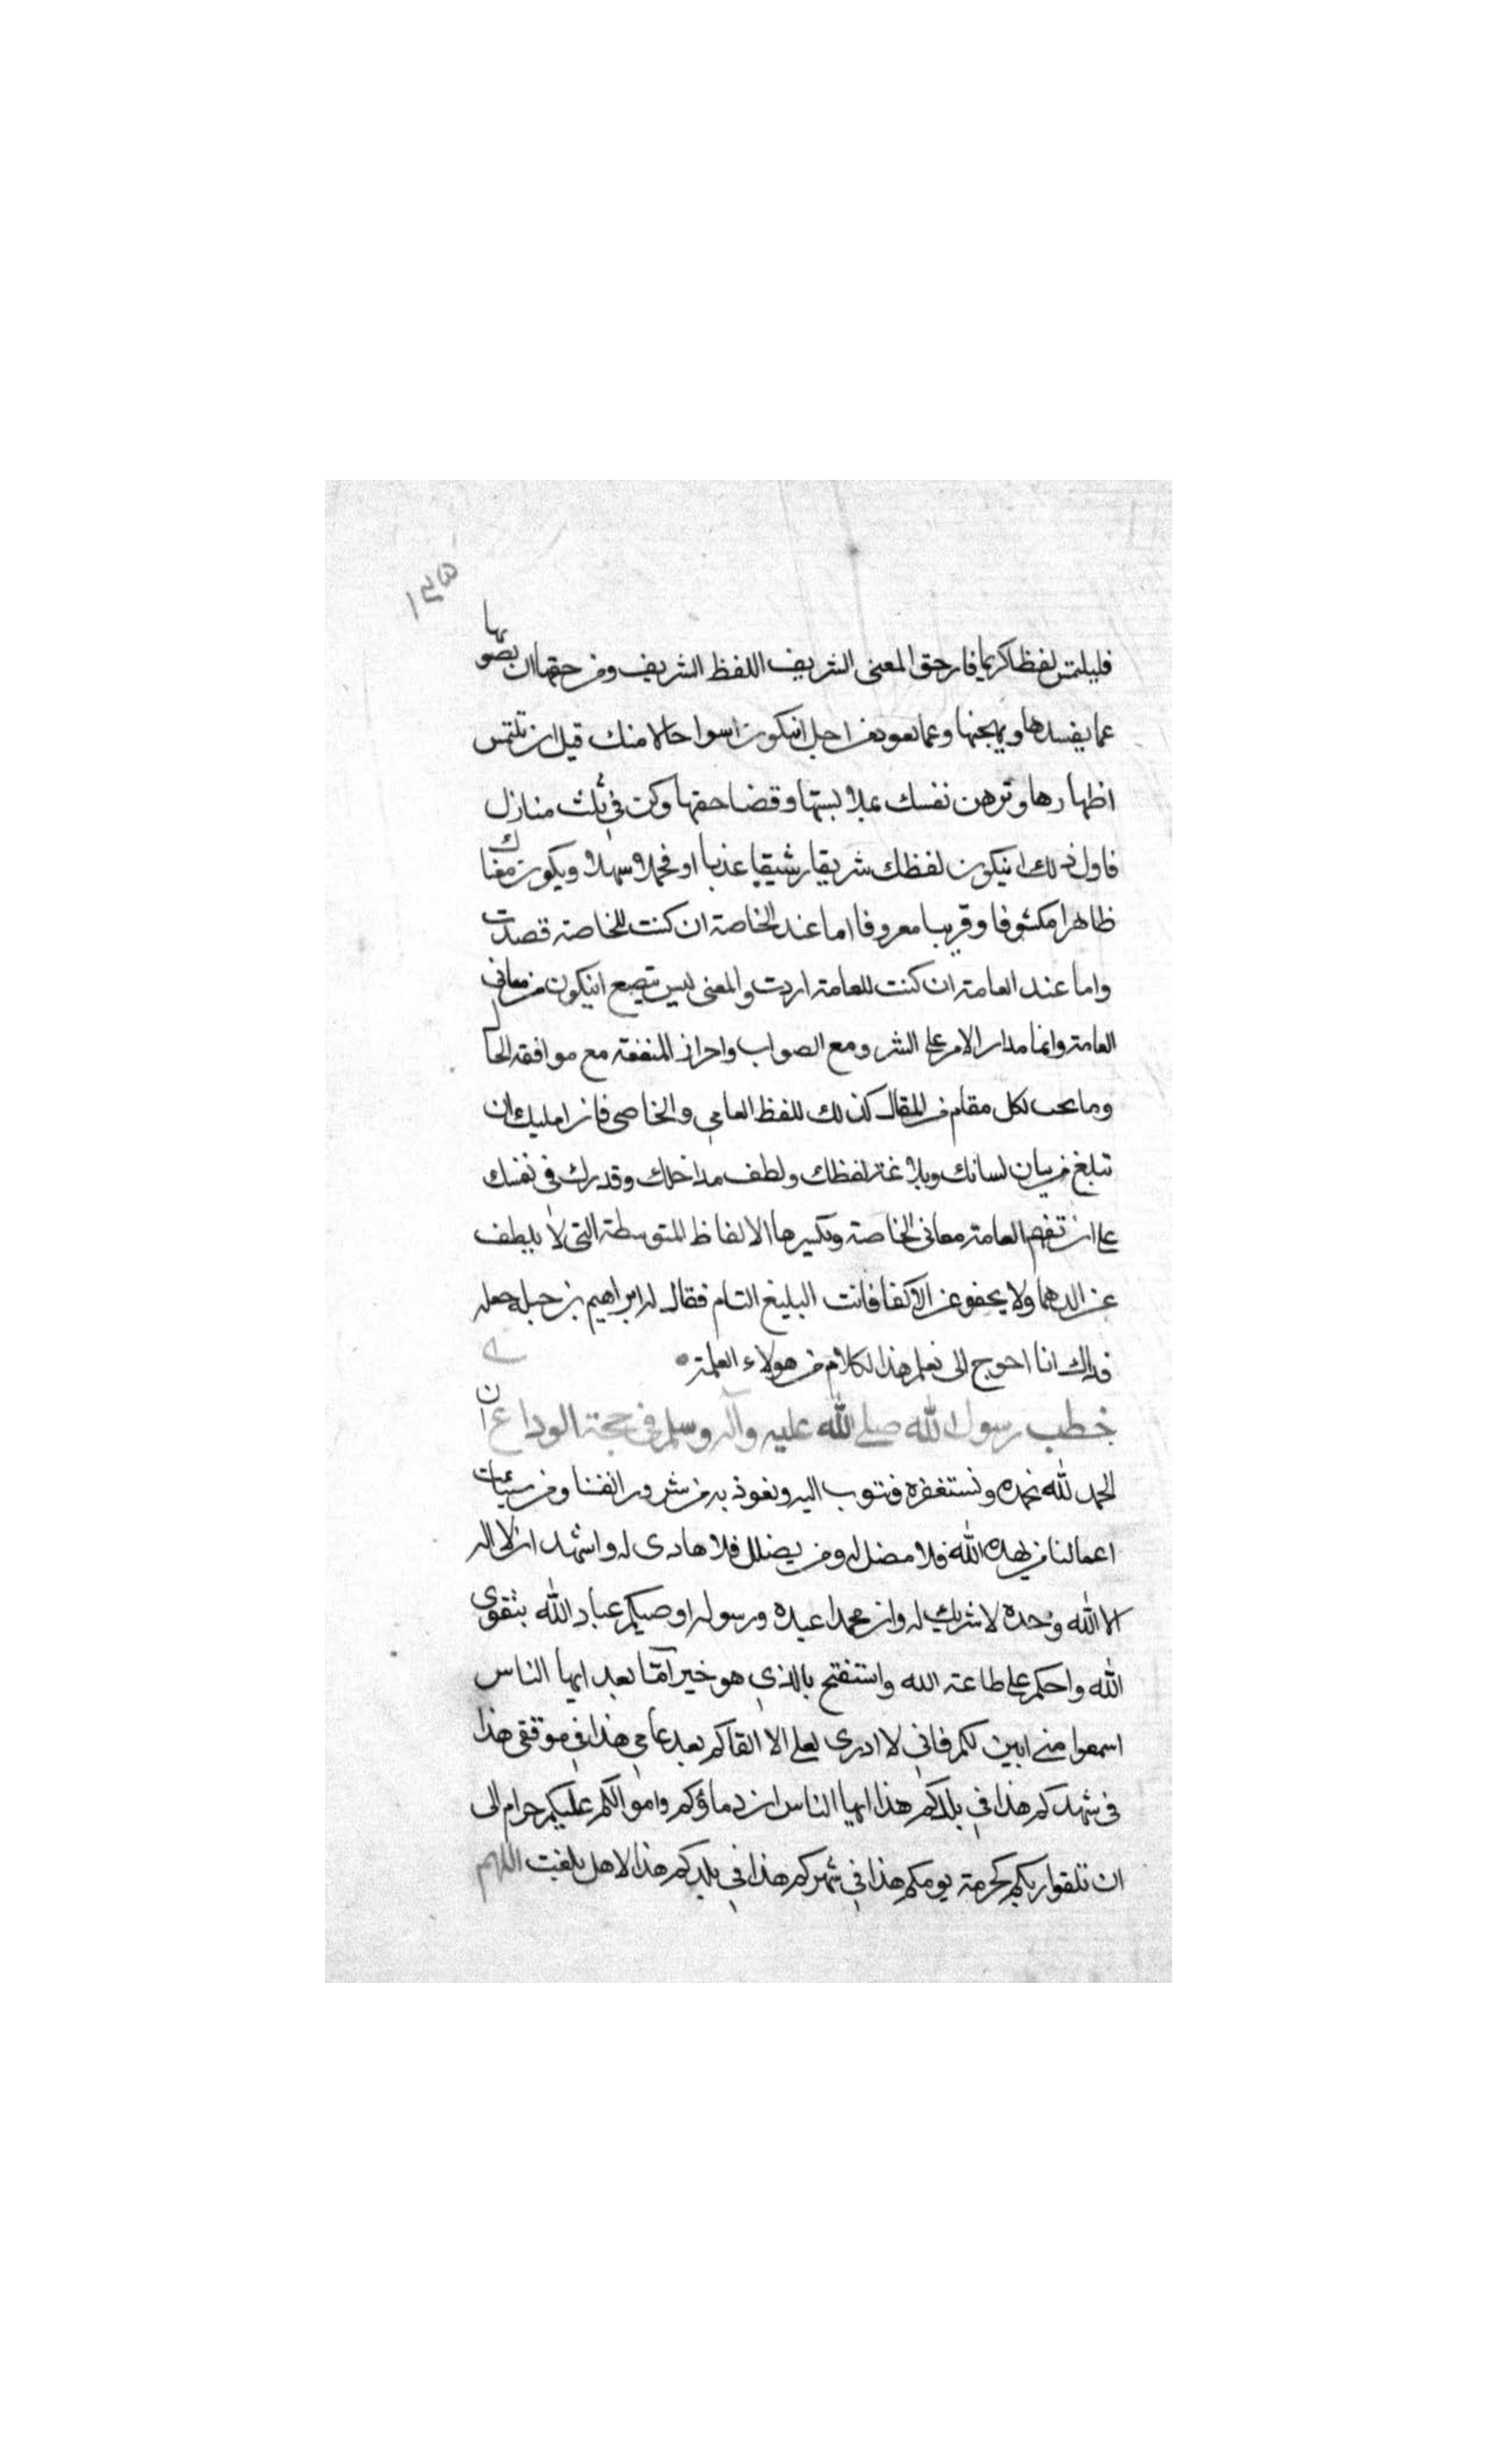 ١٢٥
فليلتمس لفظا كريما فان حق المعنى الشريف اللفظ الشريف ومن حقها ان يصونها
عما يفسدها ويهجنها وعما تعود من اجل ان يكون اسوا حالا منك قبل ان تلتمس
اظهارها وترهن نفسك بملابستها وقضا حقها وكن في ثلث منازل
فاول ذلك ان يكون لفظك شريقا رشيقا عذبا او فخملا سهلا ويكون معناك
ظاهرا مكشوفا وقريبا معروفا اما عند الخاصة ان كنت للخاصة قصدت
واما عند العامة ان كنت للعامة اردت والمعنى ليس يتصع ان يكون من معاني
العامة وانما مدار الامر على الشر ومع الصواب واحراز المنفعة مع موافقة الحال
وما يجب لكل مقام من المقال كذلك للفظ العامي والخاصي فان امليك ان
تبلغ من بيان لسانك وبلاغة لفظك ولطف مداخلك وقدرك في نفسك
على ان تفهم العامة معاني الخاصة وتكسيرها الالفاظ المتوسطة التي لا يلطف
عن الدهما ولا يجفو عن الاكفا فانت البليغ التام فقال له ابراهيم بن جبلة جعله
فداك انا احوج الى تعلم هذا الكلام من هولاء العلمة
خطب رسول الله صلى الله عليه وآله وسلم في حجة الوداع ان
الحمد لله نحمده ونستغفره فنتوب اليه ونعوذ به من شرور انفسنا ومن سيئات
اعمالنا من يهده الله فلا مضل له ومن يضلل فلا هادى له واشهد ان لا اله
الا الله وحده لا شريك له وان محمدا عبده ورسوله اوصيكم عباد الله بتقوى
الله واحكم على طاعة الله واستفتح بالذي هو خير امّا بعد ايها الناس
اسمعوا مني ابين لكم فاني لا ادرى لعلي الا القاكم بعد عامي هذا في موقفى هذا
فى شهدكم هذا في بلدكم هذا ايها الناس ان دماؤكم واموالكم عليكم حرام الى
ان تلقوا ربكم كحرمة يومكم هذا في شهركم هذا في بلدكم هذا الا هل بلغت اللهم